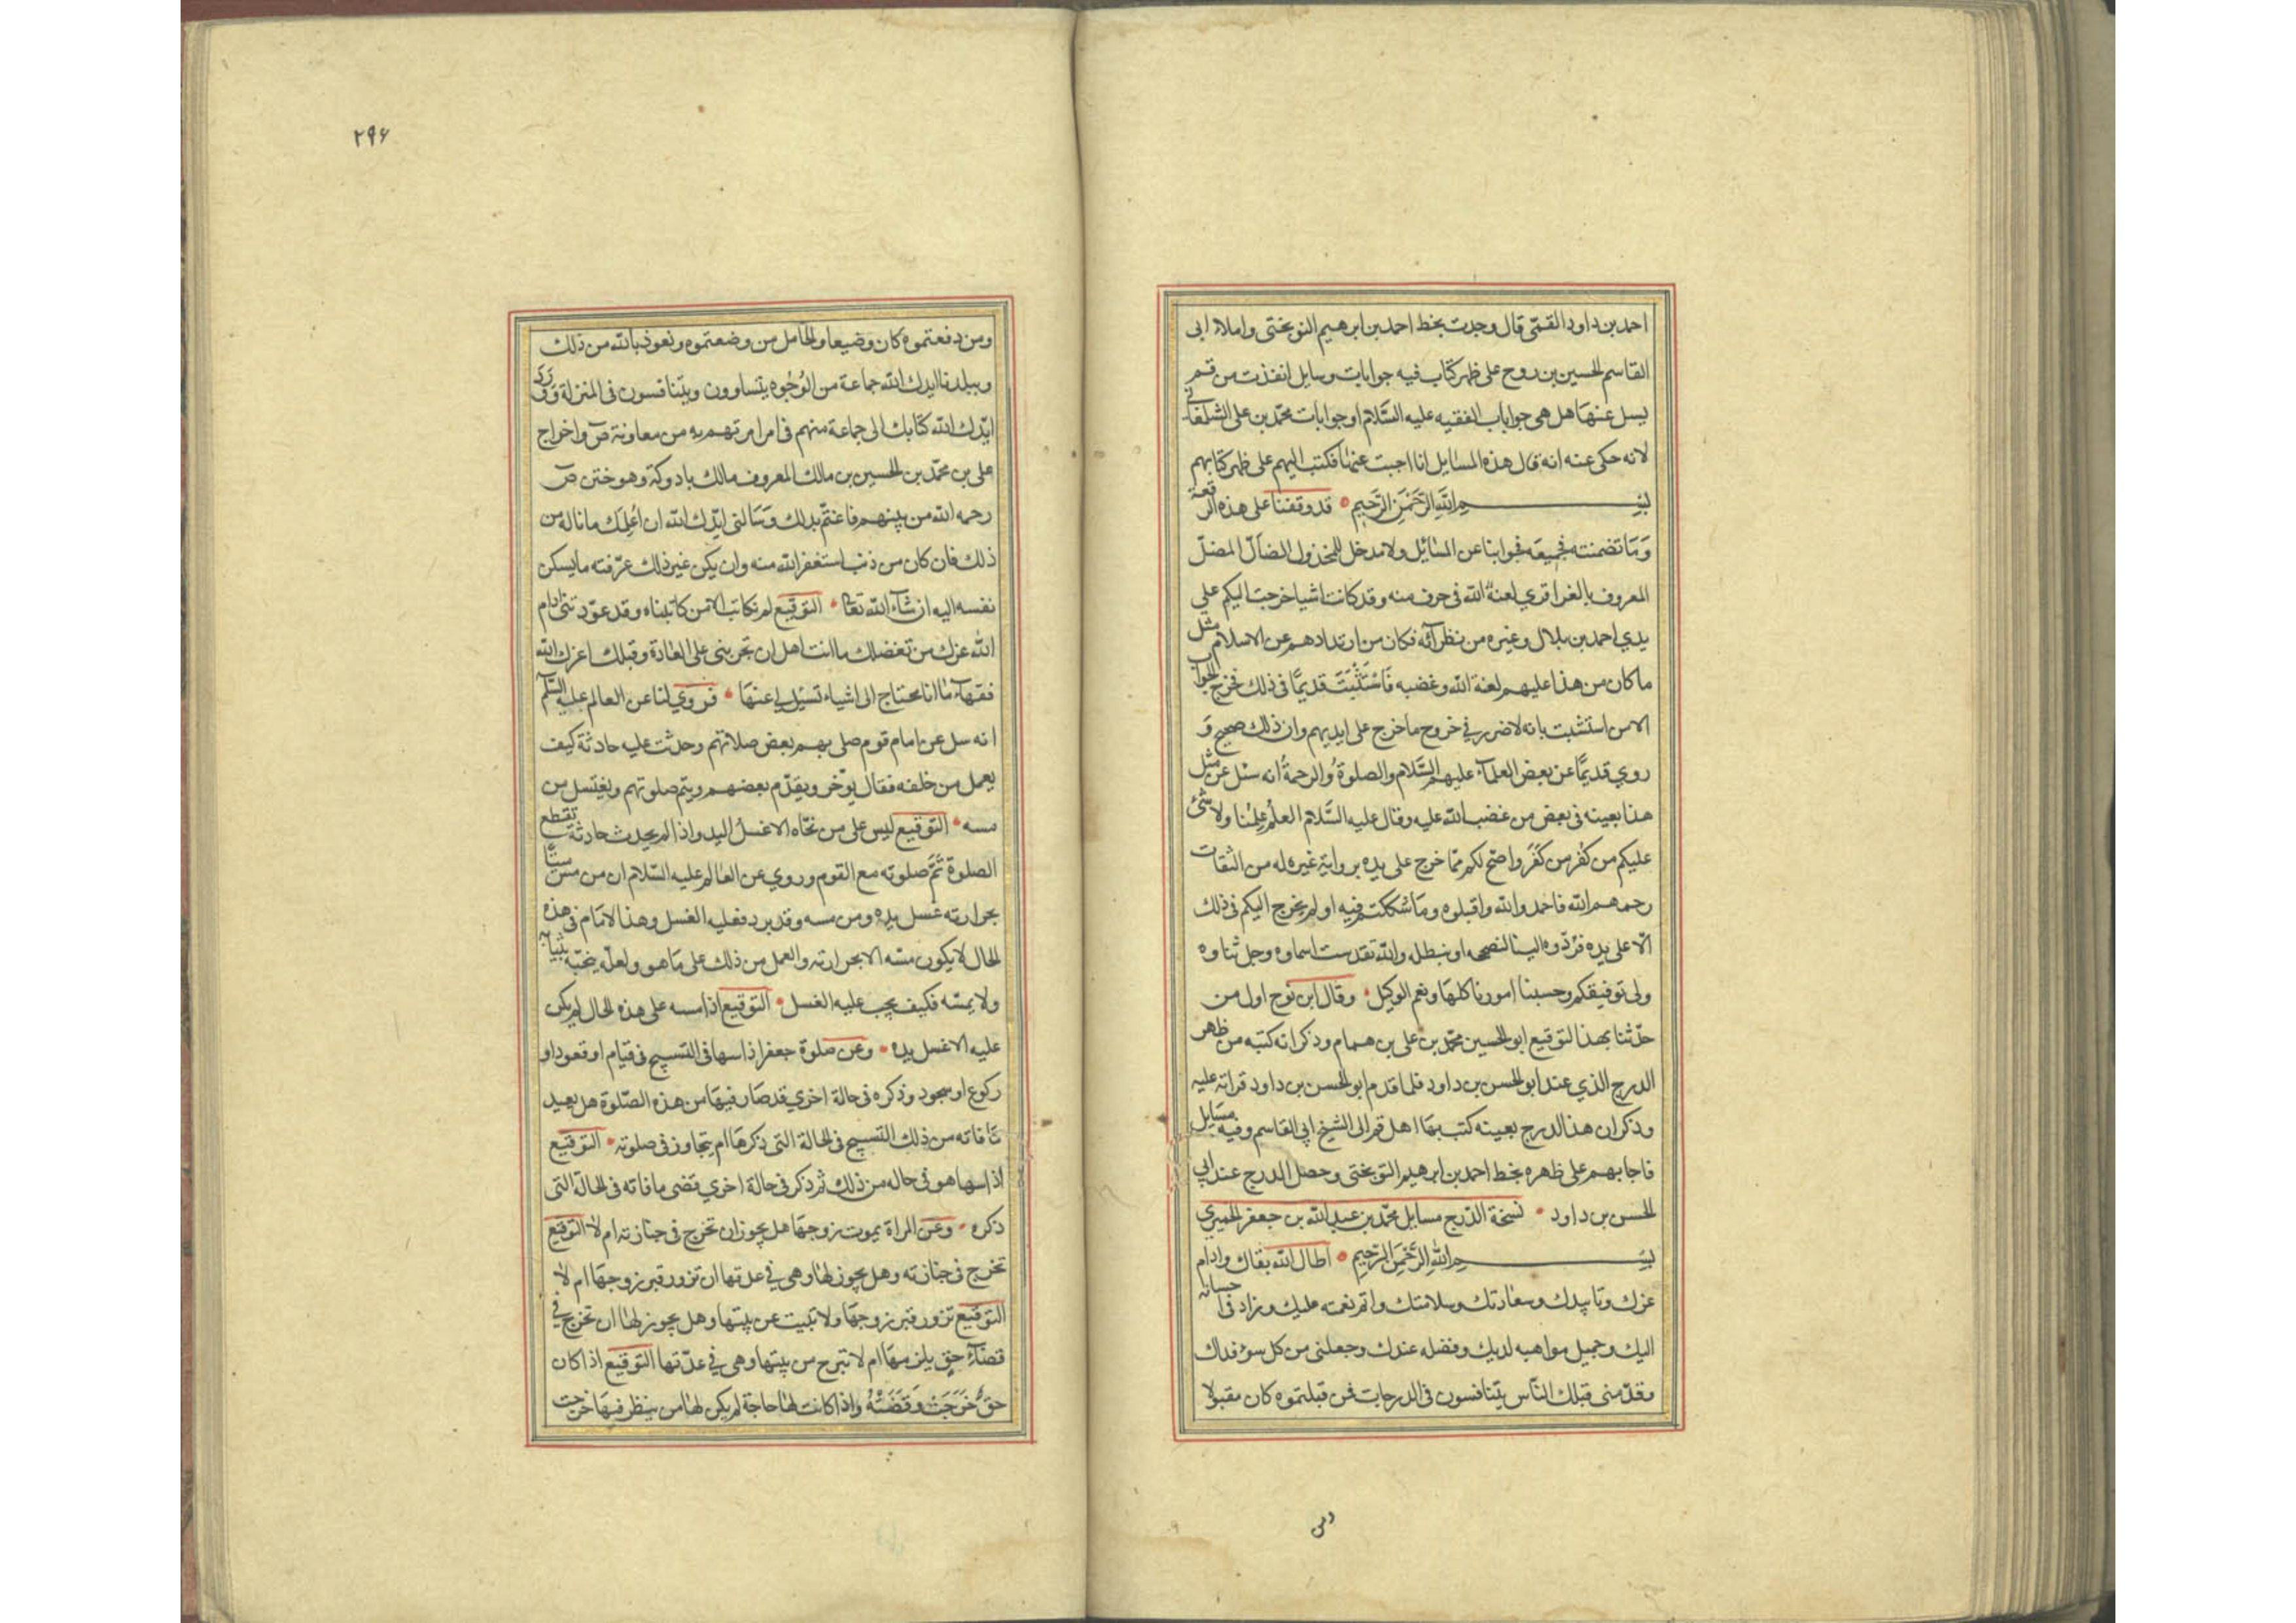 احمد بن داود القمّي قال وجدت بخط احمد بن ابرهيم النوبختي واملاء ابى
القاسم الحسين بن روح على ظهر كتاب فيه جوابات ومسايل انفذت من قم
يسل عنها هل هي جوابات الفقيه عليه السَّلام او جوابات محمّد بن على الشلمغانى
لانه حكى عنه انه قال هذه المسايل انا اجبت عنها فكتب اليهم على ظهر كتابهم
بسم اللّه الرّحمن الرّحيم قد وقفنا على هذه الرقعة
وَمَا تضمنته فجميعه جوابنا عن المسائل ولا مدخل للمخذول الضالّ المضلّ
المعروف بالعزاقري لعنة اللّه في حرف منه وقد كانت اشيا خرجت اليكم على
يدي احمد بن بلال وغيره من نظرآئه فكان من ارتدادهم عن الاسلام مثل
ما كان من هذا عليهم لعنة اللّه وغضبه فَاسْتَثْبَتَ قديمًا في ذلك فخرج الجواب
الا من استثبت بانه لا ضرر في خروج ما خرج على ايديهم وان ذلك صحيح وَ
روي قديمًا عن بعض العلمآء عليهم السّلام والصلوة والرحمة انه سئل عن مثل
هذا بعينه في بعض من غضب اللّه عليه وقال عليه السَّلام العلم علمنا ولا شئ
عليكم من كفر من كَفَرَ واضح لكم ممّا خرج على يده برواية غيره له من الثقات
رحمهم اللّه فاحمدوا اللّه واقبلوه ومَا شككتم فيه او لم يخرج اليكم في ذلك
الّا على يده فردّوه الينا لنصححه او نبطله واللّه تقدست اسماوه وجل ثناوه
ولى توفيقكم وحسبنا امورنا كلها ونعم الوكيل وقال ابن نوح اول من
حدّثنا بهذا التوقيع ابو الحسين محمّد بن على بن همام وذكر انه كتبه من ظهر
الدرج الذي عند ابو الحسن بن داود فلما قدم ابو الحسن بن داود قراته عليه
وذكر ان هذا الدرج بعينه كتب بها اهل قم الى الشيخ ابي القاسم وفيه مسَايل
فاجابهم على ظهره بخط احمد بن ابرهيم النوبختى وحصل الدرج عند ابي
الحسن بن داود نسخة الدّرج مسايل محمّد بن عبد اللّه بن جعفر الحميري
بسم اللّه الرّحمن الرّحيم اطال اللّه بقاك وادام
عزك وتاييدك وسعادتك وسلامتك واتم نعمته عليك وزاد في احسانه
اليك وجميل مواهبه لديك وفضله عندك وجعلنى من كل سوء فداك
وقدّمنى قبلك النّاس يتنافسون في الدرجات فمن قبلتموه كان مقبولا
ومن
٢٩۶
ومن دفعتموه كان وضيعا والخامل من وضعتموه ونعوذ باللّه من ذلك
وببلدنا ايدك اللّه جماعة من الوُجُوه يتساوون ويتنافسون في المنزلة وورد
ايّدك اللّه كتابك الى جماعة منهم في امر امرتهم به من معاونة ص واخراج
على بن محمّد بن الحسين بن مالك المعروف مالك بادوكة وهو ختن ص
رحمه اللّه من بينهم فاغتم بذلك وَسَالنى ايّدك اللّه ان اُعلِمَك ما ناله من
ذلك فان كان من ذنب استغفر اللّه منه وان يكن غير ذلك عرّفته ما يسكن
نفسه اليه ان شآء اللّه تعا التوقيع لم نكاتب الا من كاتبناه وقد عوّدتنى ادام
اللّه عزك من تفضلك ما انت اهل ان تجرينى على العادة وقبلك اعزك اللّه
فقهآء مَا انا محتاج الى اشياء تسئل لي عنهَا فروي لنا عن العالم عليه السّلم
انه سل عن امام قوم صلى بهم بعض صلاتهم وحدثت عليه حادثة كيف
يعمل من خلفه فقال يؤخر ويقدّم بعضهم ويتم صلوتهم ويغتسل من
مسه التوقيع ليس على من نحّاه الا غسل اليد واذا لم يحدث حادثة تقطع
الصلوة تمّم صلوته مع القوم وروي عن العالم عليه السّلام ان من مسّ ميتًا
بحرارته غسل يده ومن مسه وقد برد فعليه الغسل وهذا الامَام في هذه
الحال لا يكون مسّه الا بحرارته والعمل من ذلك على مَا هو ولعلّه ينحّيه بثيابه
ولا يمسّه فكيف يجب عليه الغسل التوقيع اذا مسه على هذه الحال لم يكن
عليه الا غسل يده وعن صلوة جعفر اذا سها في التسبيح في قيام او قعود او
ركوع او سجود وذكره في حالة اخري قد صَار فيها من هذه الصّلوة هل يعيد
مَا فاته من ذلك التسبيح في الحالة التى ذكرهَا ام يتجاوز في صلوته التوقيع
اذا سها هو في حاله من ذلك ثم ذكر في حالة اخري قضى ما فاته في الحالة التى
ذكره وعن المراة يموت زوجهَا هل يجوز ان تخرج في جنازته ام لا التوقيع
تخرج في جنازته وهل يجوز لها وهي في عدتها ان تزور قبر زوجهَا ام لا
التوقيع تزور قبر زوجهَا ولا تبيت عن بيتها وهل يجوز لها ان تخرج في
قضآء حق يلزمهَا ام لا تبرح من بيتها وهي في عدّتها التوقيع اذا كان
حقٌّ خَرَجَتْ وَقَضَتْهُ واذا كانت لها حاجة لم يكن لها من ينظر فيهَا خرجت